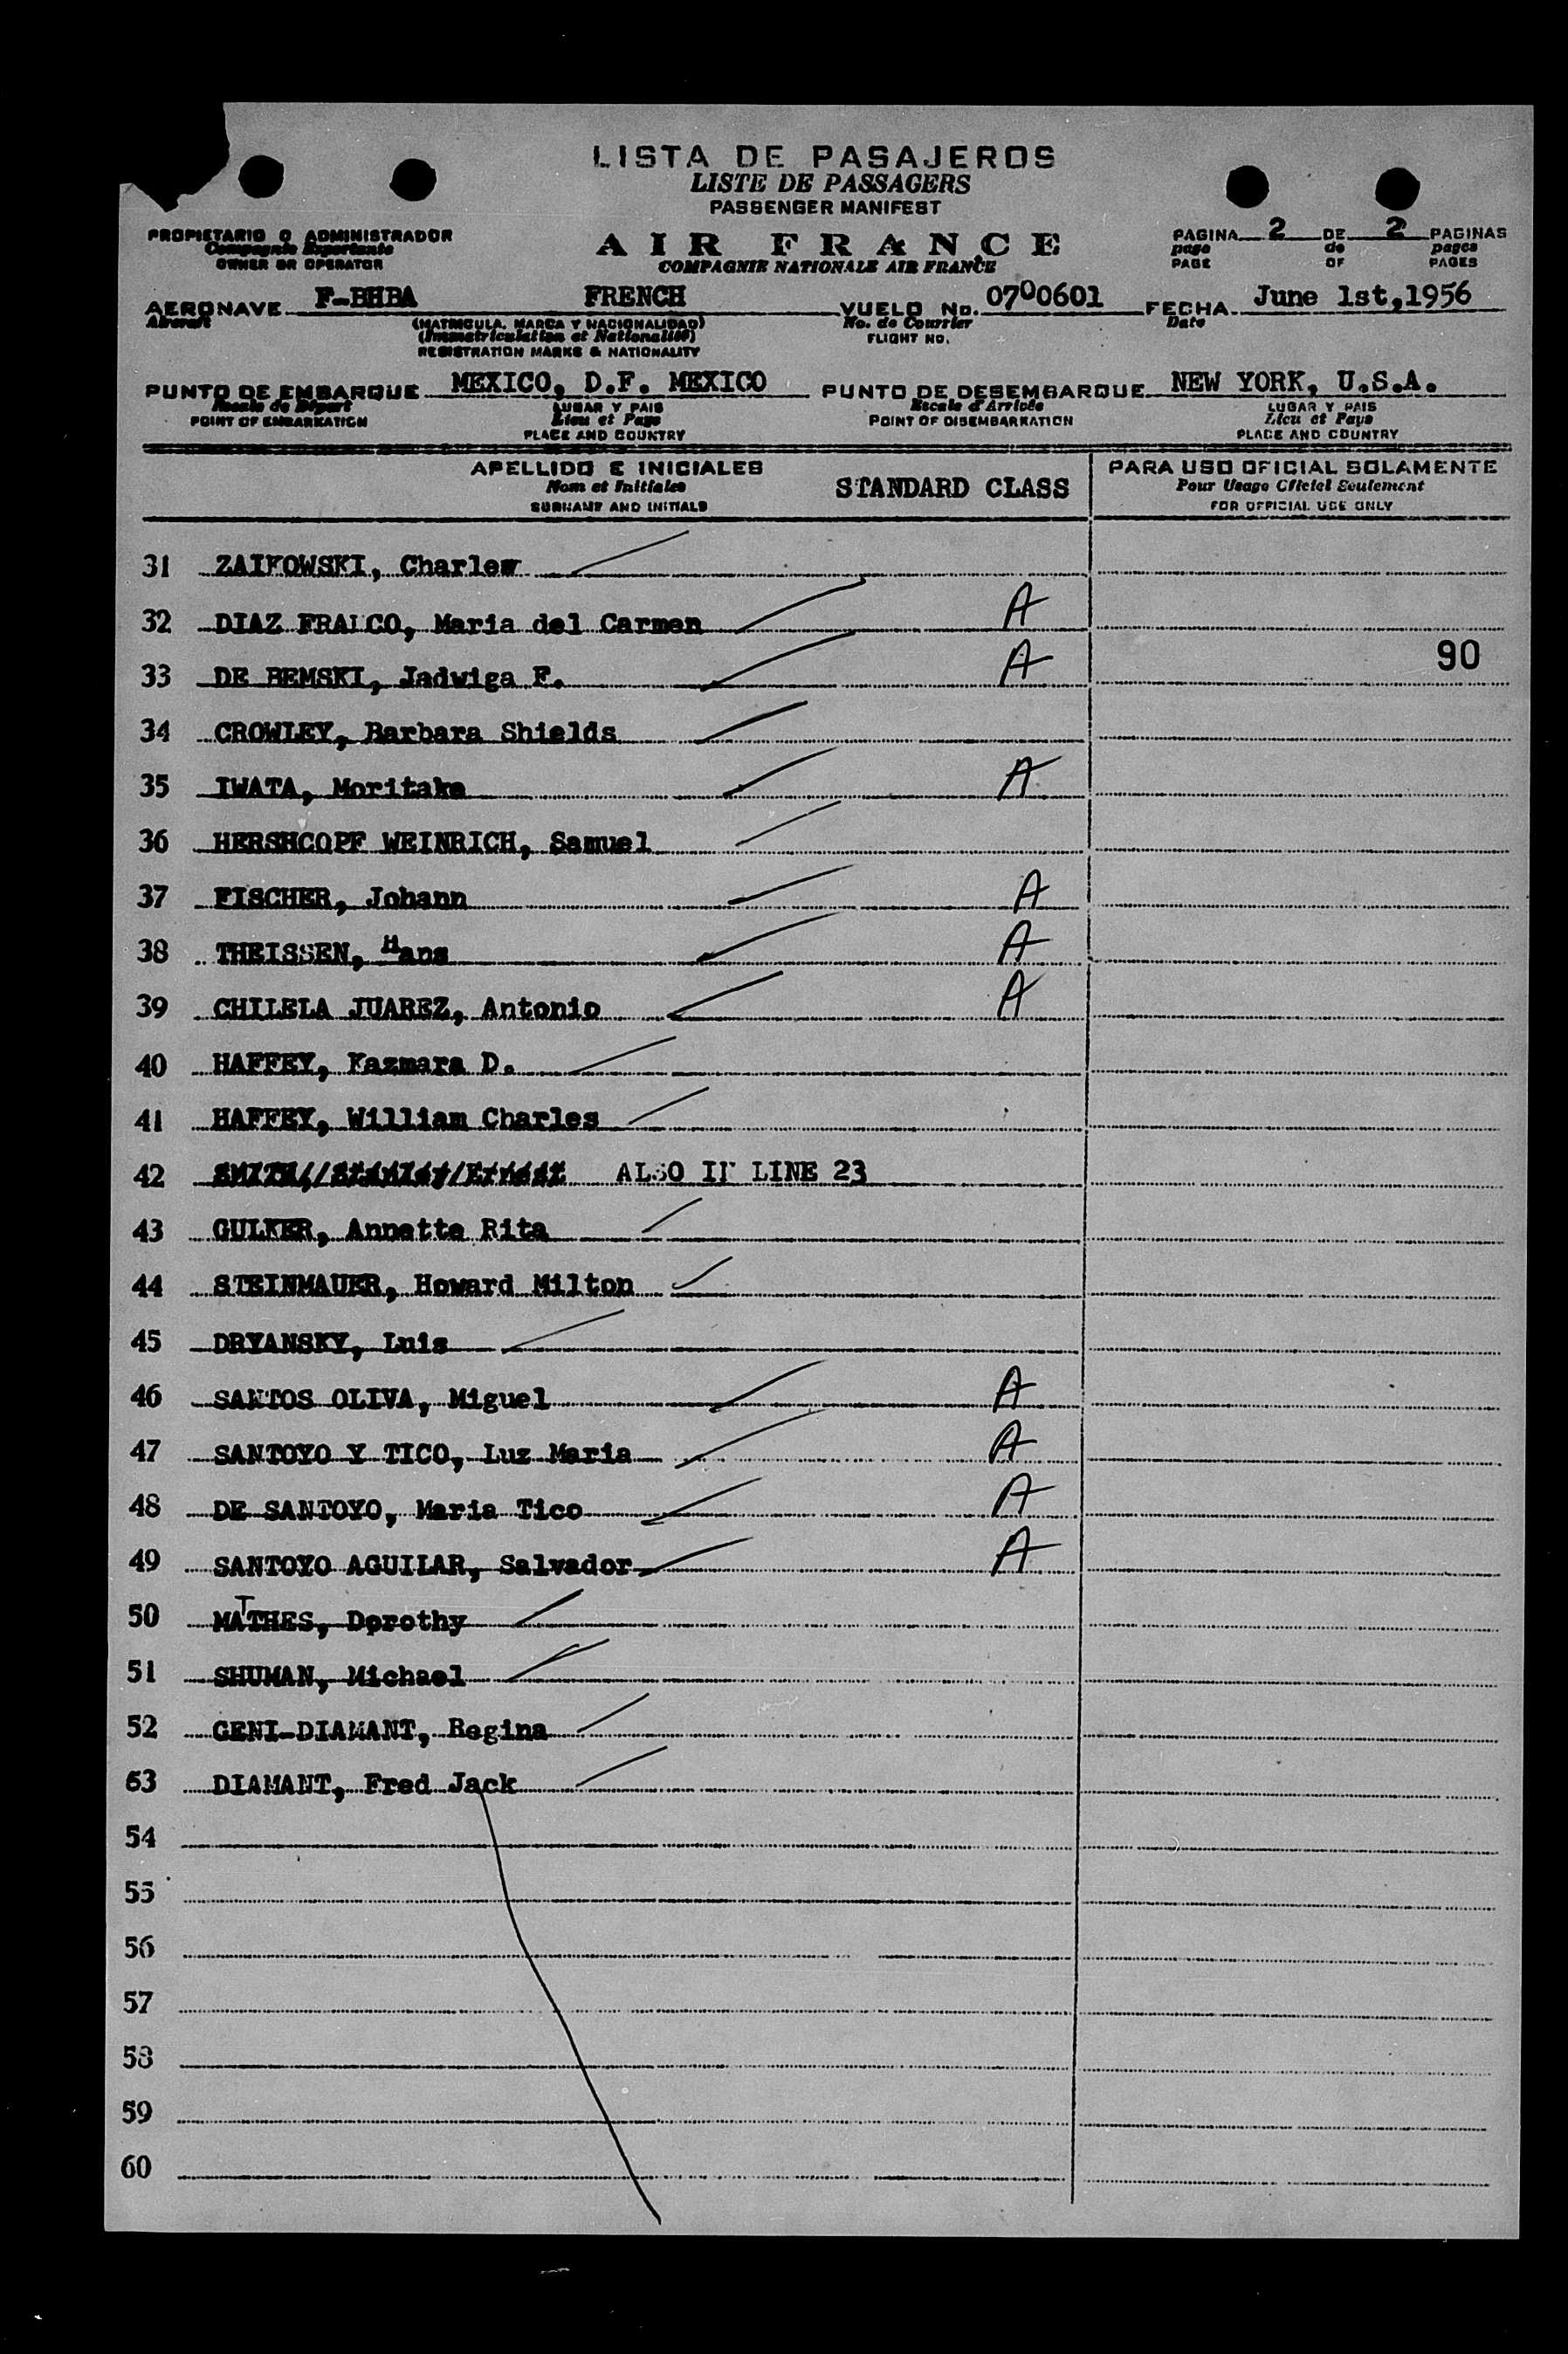 LISTA DE PASAJEROS
LISTE DE PASSAGERS
PASSENGER MANIFEST
PROPIETARIO O ADMINISTRADOR
Compagnie Exportante
OWNER OR OPERATOR
AIR FRANCE
COMPAGNIE NATIONALE AIR FRANCE
PAGINA 2 DE 2 PAGINAS
page de pages
PAGE OF PAGES
AERONAVE F-BHBA FRENCH VUELO No. 07º0601 FECHA June 1st,1956
Aircraft (MATRICULA, MARCA Y NACIONALIDAD) No. de Courrier Date
(Immatriculation et Nationalité) FLIGHT NO.
REGISTRATION MARKS & NATIONALITY
PUNTO DE EMBARQUE MEXICO, D.F. MEXICO PUNTO DE DESEMBARQUE NEW YORK, U.S.A.
Escale de Départ LUGAR Y PAIS Escale d'Arrivée LUGAR Y PAIS
POINT OF EMBARKATION Lieu et Pays POINT OF DISEMBARKATION Lieu et Pays
PLACE AND COUNTRY PLACE AND COUNTRY
APELLIDO E INICIALES PARA USO OFICIAL SOLAMENTE
Nom et Initiales STANDARD CLASS Pour Usage Officiel Seulement
SURNAME AND INITIALS FOR OFFICIAL USE ONLY
31 ZAIKOWSKI, Charles
32 DIAZ FRANCO, Maria del Carmen A
33 DE BEMSKI, Jadwiga F. A 90
34 CROWLEY, Barbara Shields
35 IWATA, Moritaka A
36 HERSHCOPF WEINRICH, Samuel
37 FISCHER, Johann A
38 THEISSEN, Hans A
39 CHILELA JUAREZ, Antonio A
40 HAFFEY, Kazmara D.
41 HAFFEY, William Charles
42 SMITH, Stanley Ernest ALSO IN LINE 23
43 GULKER, Annette Rita
44 STEINMAUER, Howard Milton
45 DRYANSKY, Luis
46 SANTOS OLIVA, Miguel A
47 SANTOYO Y TICO, Luz Maria A
48 DE SANTOYO, Maria Tico A
49 SANTOYO AGUILAR, Salvador A
50 MATTHES, Dorothy
51 SHUMAN, Michael
52 GENI-DIAMANT, Regina
53 DIAMANT, Fred Jack
54
55
56
57
58
59
60